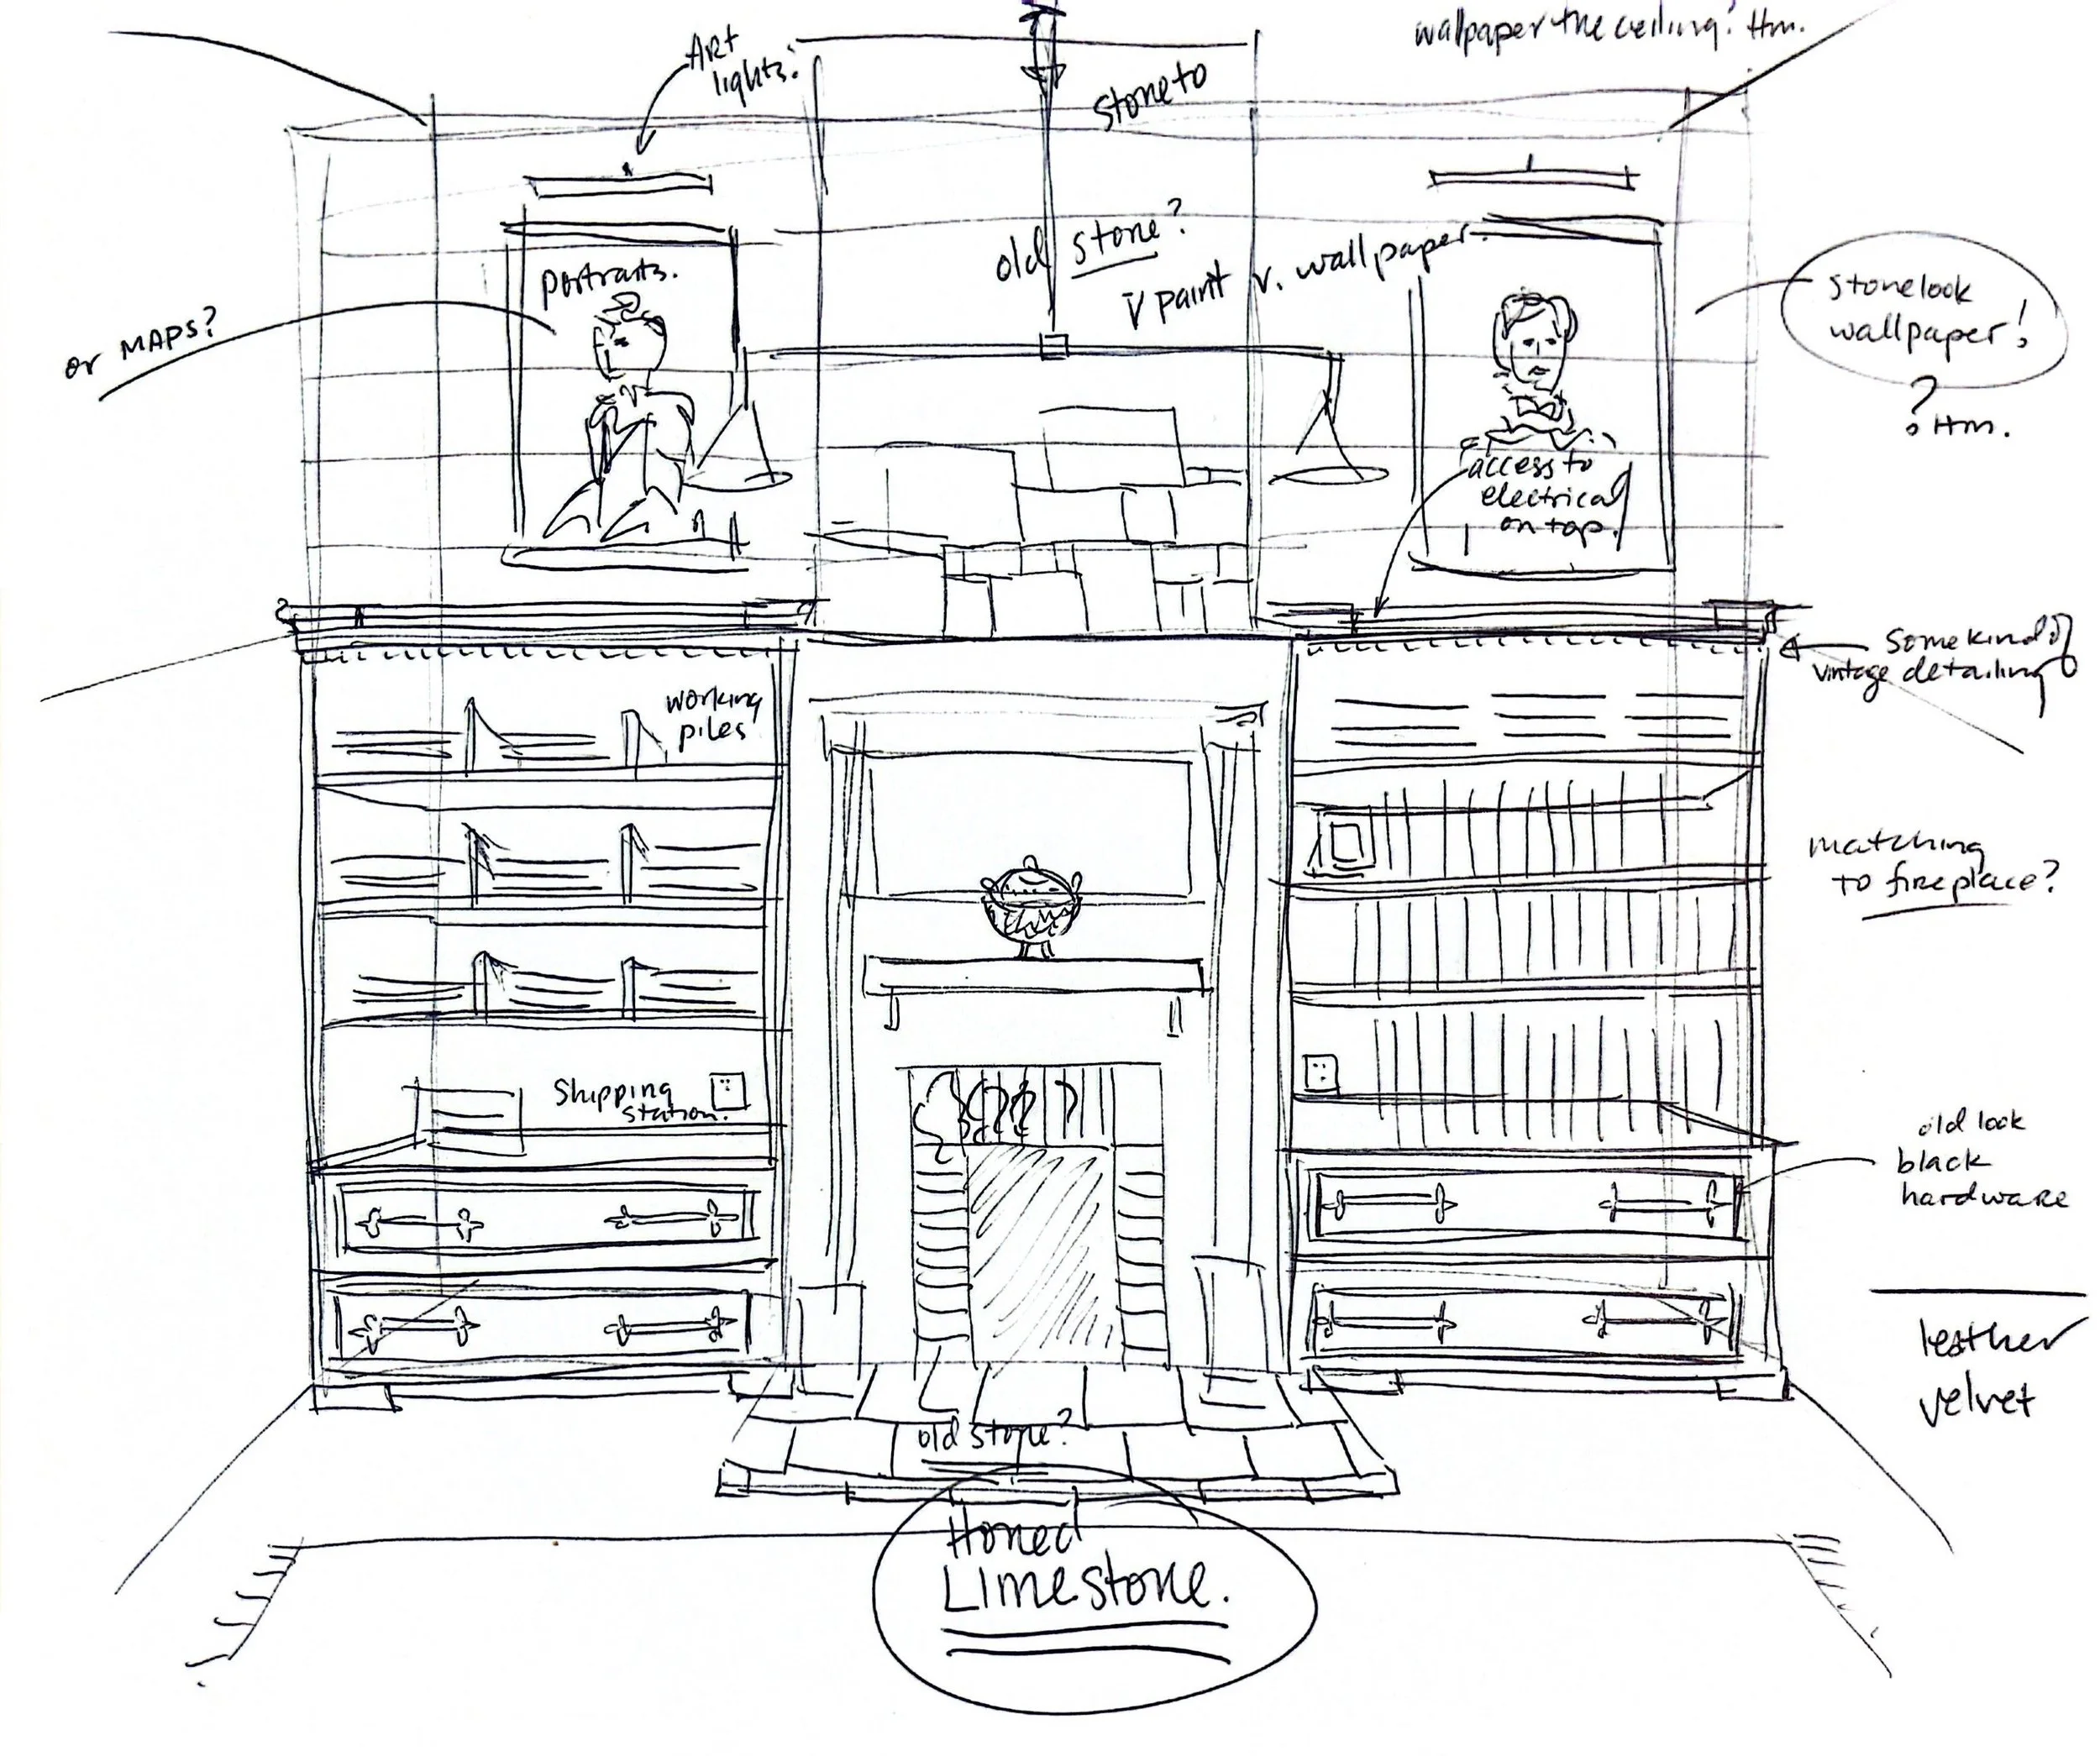 wallpaper the ceiling? Hm.
Art
lights?
stone to
old stone?
paint v. wallpaper.
portraits.
or MAPS?
stonelook
wallpaper!
? Hm.
access to
electrical
on top!
some kind of
vintage detailing
working
piles
matching
to fireplace?
Shipping
station.
old look
black
hardware
leather
velvet
old stone?
Honed
Limestone.